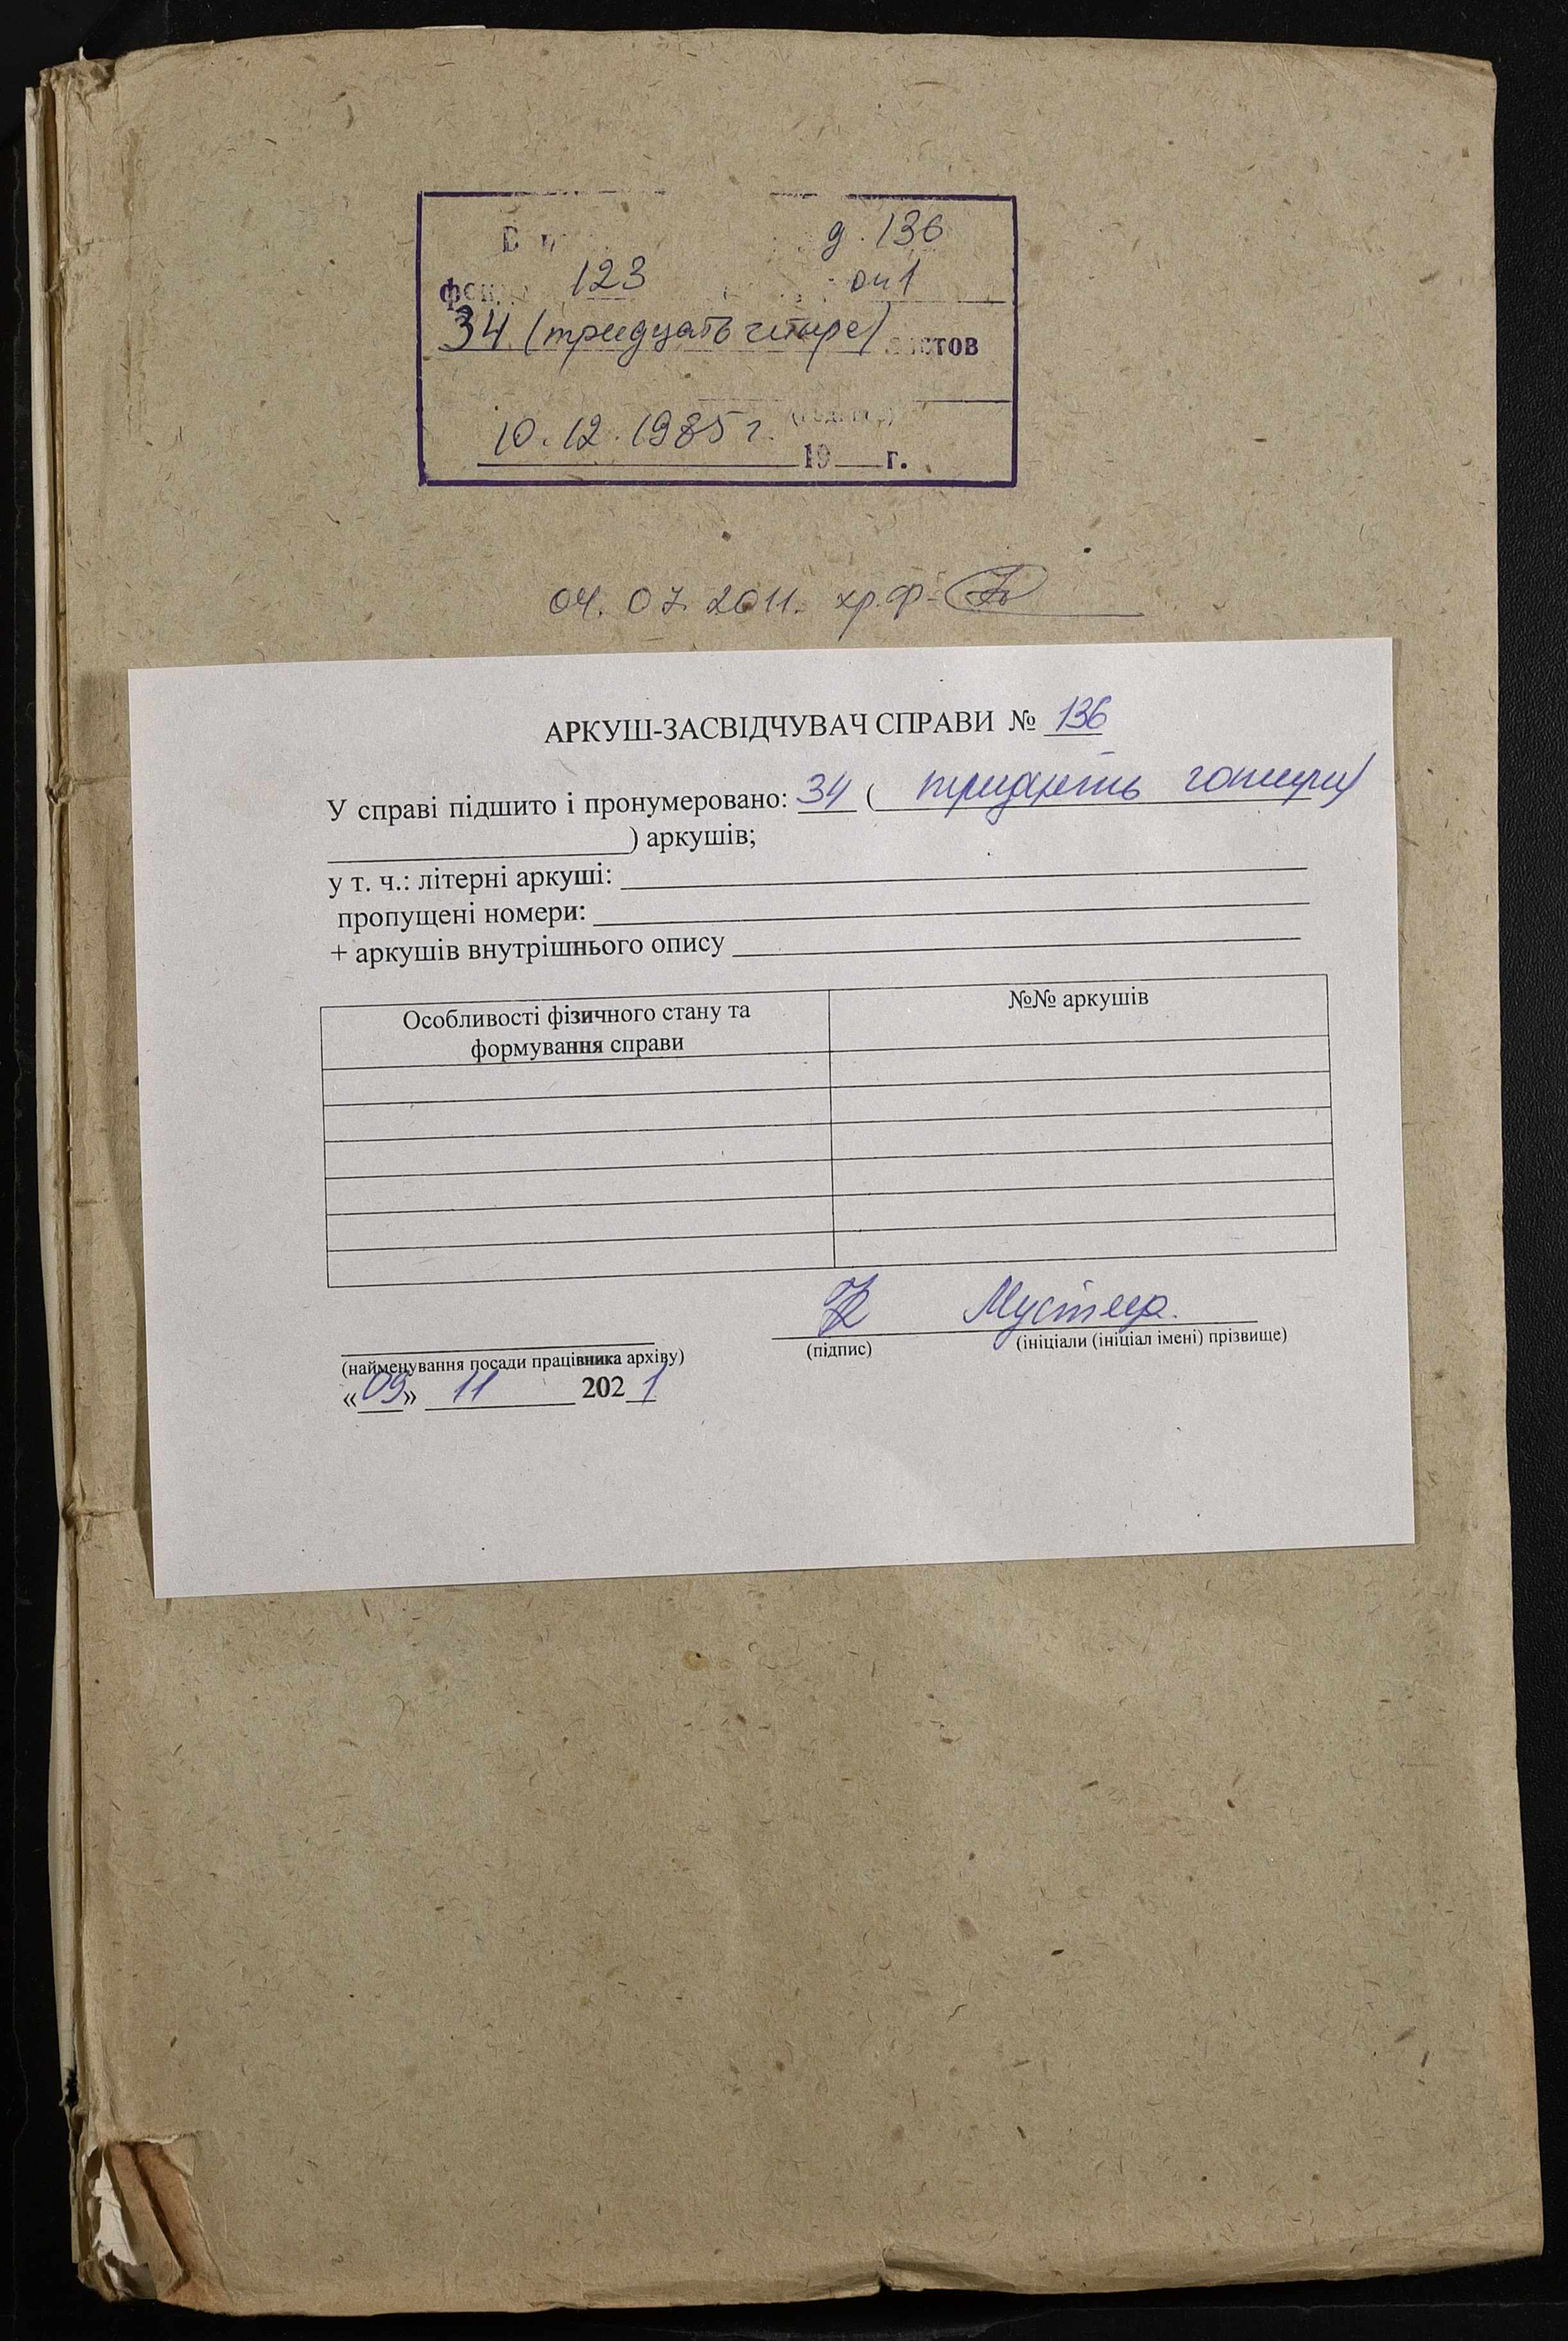 д. 136
фонд 123 оп 1
34 (тридцать четыре) листов
10.12.1985 г.
19 г.
04.07.2011. хр.ф-
АРКУШ-ЗАСВІДЧУВАЧ СПРАВИ № 136
У справі підшито і пронумеровано: 34 ( тридцять чотири)
) аркушів;
у т. ч.: літерні аркуші:
пропущені номери:
+ аркушів внутрішнього опису
Особливості фізичного стану та
формування справи
№№ аркушів
Мустеца.
(найменування посади працівника архіву)
(підпис)
(ініціали (ініціал імені) прізвище)
«09» 11 2021